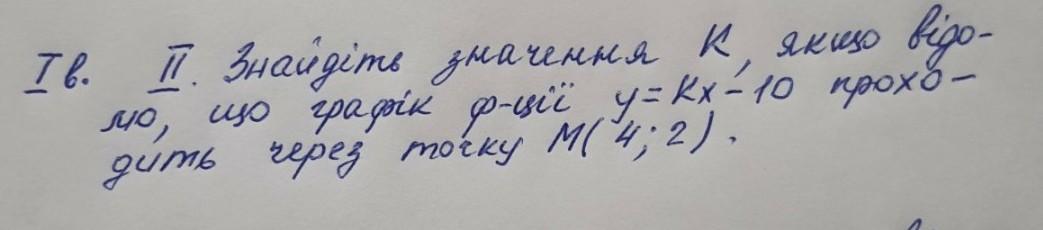 I в. II. Знайдіть значення К, якщо відо-
мо, що графік ф-ції y=Kx-10 прохо-
дить через точку М(4;2).